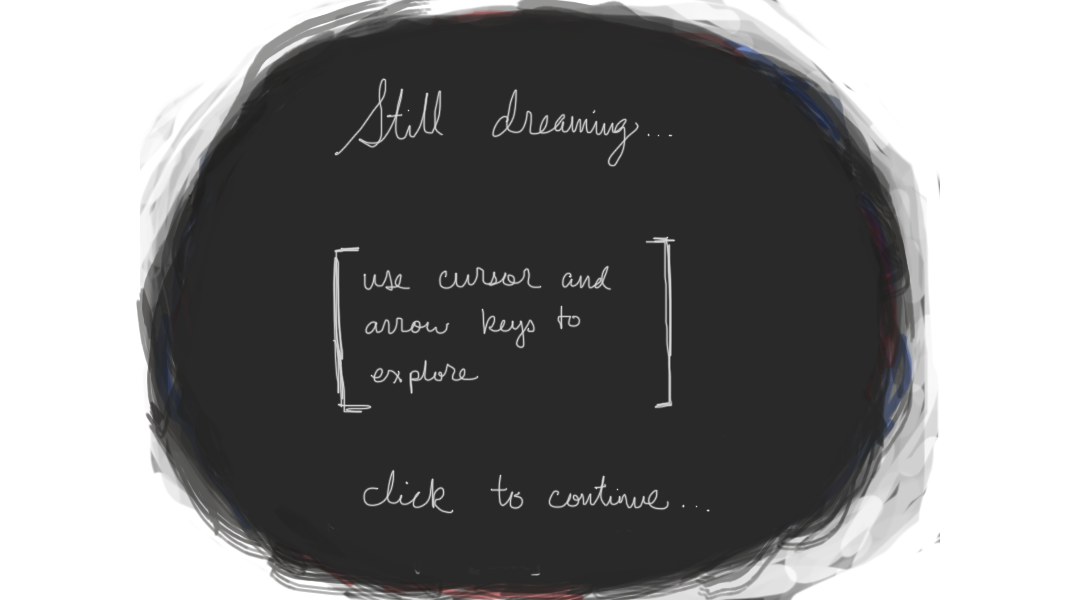 Still dreaming...
[use cursor and
arrow keys to
explore]
click to continue...